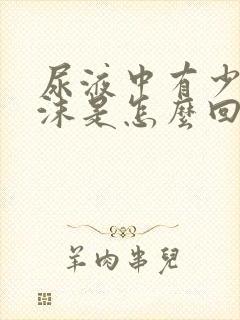 尿液中有少
沫是怎麼回
羊肉串兒